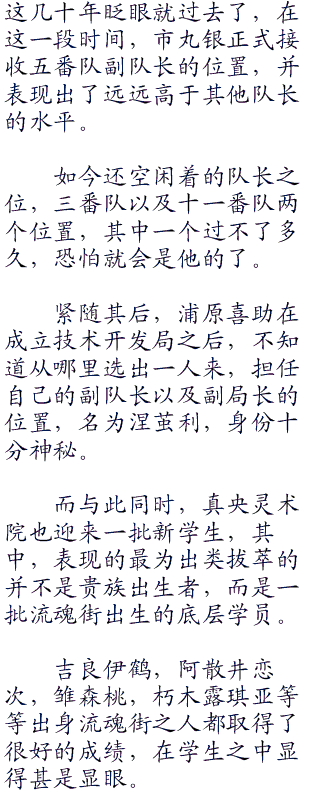 这几十年眨眼就过去了，在
这一段时间，市丸银正式接
收五番队副队长的位置，并
表现出了远远高于其他队长
的水平。
如今还空闲着的队长之
位，三番队以及十一番队两
个位置，其中一个过不了多
久，恐怕就会是他的了。
紧随其后，浦原喜助在
成立技术开发局之后，不知
道从哪里选出一人来，担任
自己的副队长以及副局长的
位置，名为涅茧利，身份十
分神秘。
而与此同时，真央灵术
院也迎来一批新学生，其
中，表现的最为出类拔萃的
并不是贵族出生者，而是一
批流魂街出生的底层学员。
吉良伊鹤，阿散井恋
次，雏森桃，朽木露琪亚等
等出身流魂街之人都取得了
很好的成绩，在学生之中显
得甚是显眼。